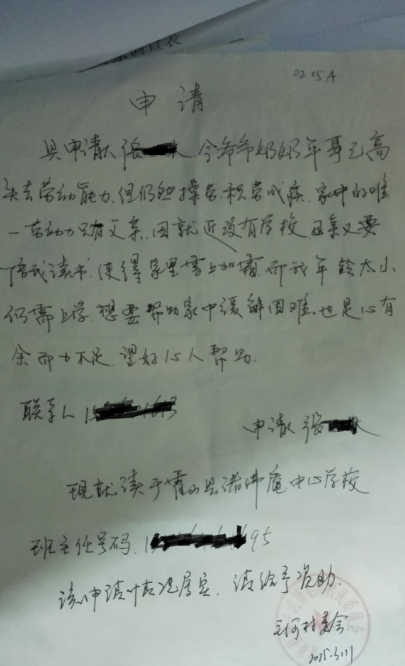 0205A
申请
具申请人张 今爷爷奶奶年事已高
失去劳动能力,但仍然操劳.积劳成疾.家中的唯
一劳动力只有父亲.因就近没有学校,母亲又要
陪我读书.使得家里雪上加霜.而我年龄太小
仍需上学.想要帮助家中缓解困难.也是心有
余而力不足.望好心人帮助.
联系人1
申请人张
现就读于霍山县诸佛庵中心学校
班主任号码.1 95
该申请情况属实.请给予资助.
村委会
2015.3.11